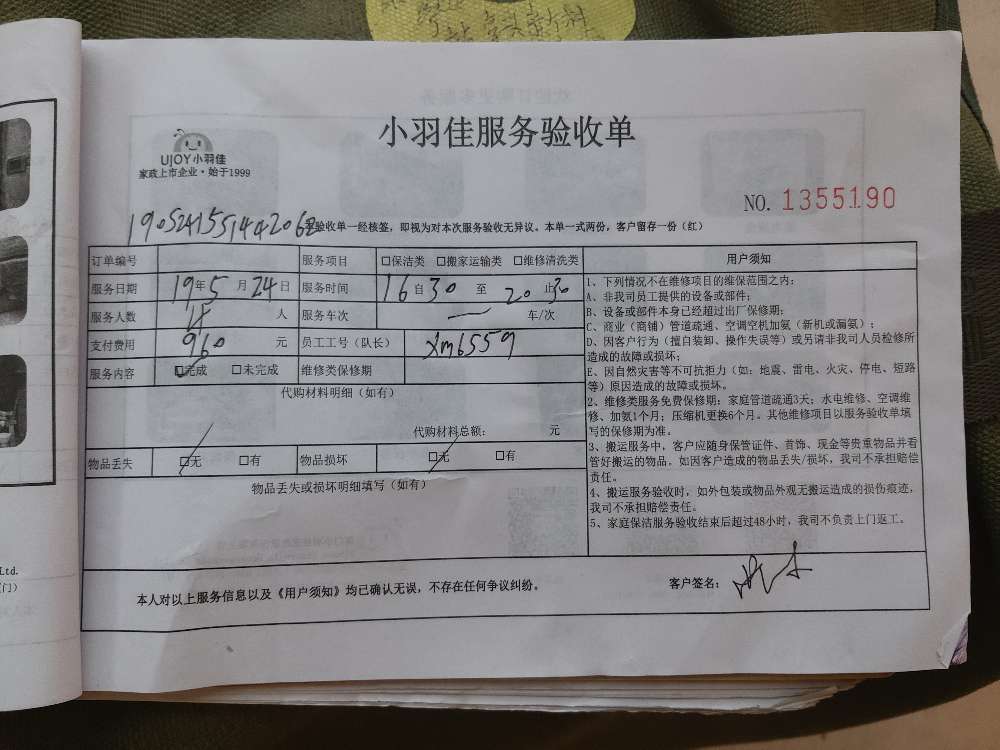 小羽佳服务验收单
UJOY小羽佳
家政上市企业·始于1999
NO. 1355190
验收单一经核签，即视为对本次服务验收无异议。本单一式两份，客户留存一份（红）
订单编号 服务项目 □保洁类 □搬家运输类 □维修清洗类
服务日期 19年5月24日 服务时间 16 30 至 20 30
服务人数 4 人 服务车次 一 车/次
支付费用 960 元 员工工号（队长） xm6559
服务内容 ☑完成 □未完成 维修类保修期
代购材料明细（如有）
代购材料总额： 元
物品丢失 ☑无 □有 物品损坏 ☑无 □有
物品丢失或损坏明细填写（如有）
用户须知
1、下列情况不在维修项目的维保范围之内：
A、非我司员工提供的设备或部件；
B、设备或部件本身已经超过出厂保修期；
C、商业（商铺）管道疏通、空调空机加氨（新机或漏氨）；
D、因客户行为（擅自装卸、操作失误等）或另请非我司人员检修所
造成的故障或损坏；
E、因自然灾害等不可抗拒力（如：地震、雷电、火灾、停电、短路
等）原因造成的故障或损坏。
2、维修类服务免费保修期：家庭管道疏通3天；水电维修、空调维
修、加氨1个月；压缩机更换6个月。其他维修项目以服务验收单填
写的保修期为准。
3、搬运服务中，客户应随身保管证件、首饰、现金等贵重物品并看
管好搬运的物品。如因客户造成的物品丢失/损坏，我司不承担赔偿
责任。
4、搬运服务验收时，如外包装或物品外观无搬运造成的损伤痕迹，
我司不承担赔偿责任。
5、家庭保洁服务验收结束后超过48小时，我司不负责上门返工。
本人对以上服务信息以及《用户须知》均已确认无误，不存在任何争议纠纷。
客户签名：
Ltd.
门）